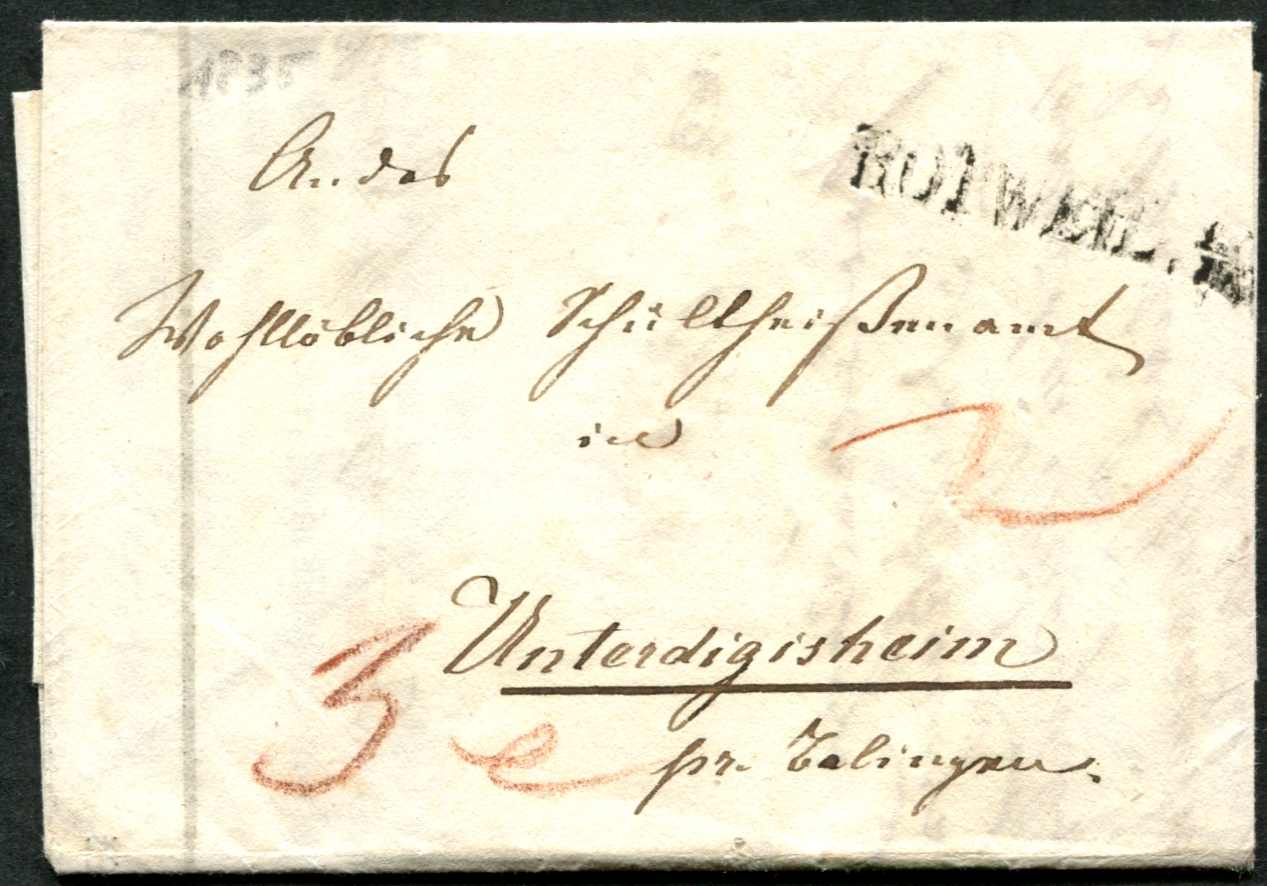 1835
An das
ROTWEIL.
Wohllöbliche Schultheißenamt
in
2
Unterdigisheim
3
pr. Balingen.